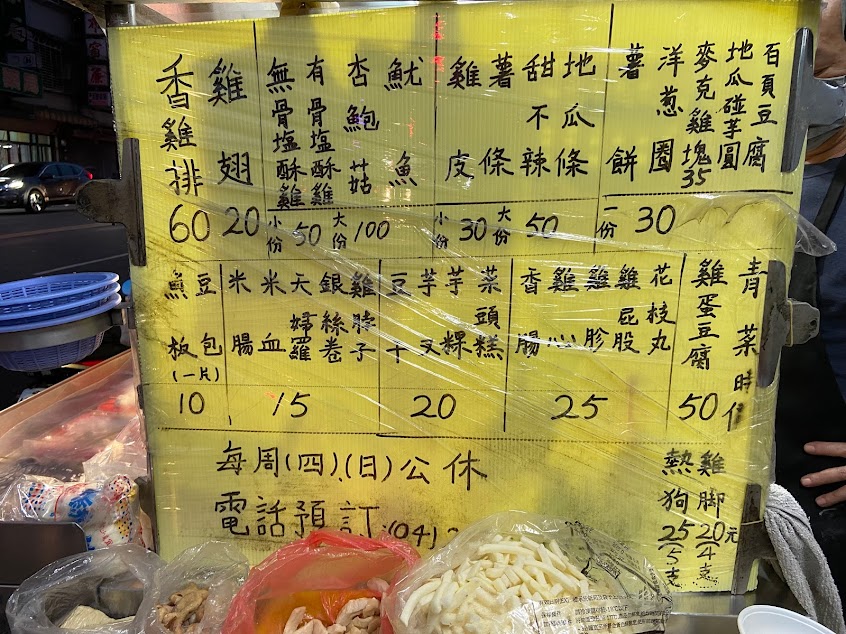 香雞排
60
雞翅
20
無骨塩酥雞
有骨塩酥雞
杏鮑菇
魷魚
小份 50 大份 100
雞皮
薯條
甜不辣
地瓜條
小份 30 大份 50
薯餅
洋葱圈
麥克雞塊35
地瓜碰芋圓
百頁豆腐
一份 30
魚板
豆包
(一片)
10
米腸
米血
天婦羅
銀絲卷
雞脖子
15
豆干
芋叉
芋粿
菜頭糕
20
香腸
雞心
雞胗
雞屁股
花枝丸
25
雞蛋豆腐
50
青菜時
每周(四)、(日)公休
電話預訂(04)
熱狗25/5支
雞脚20元/4支